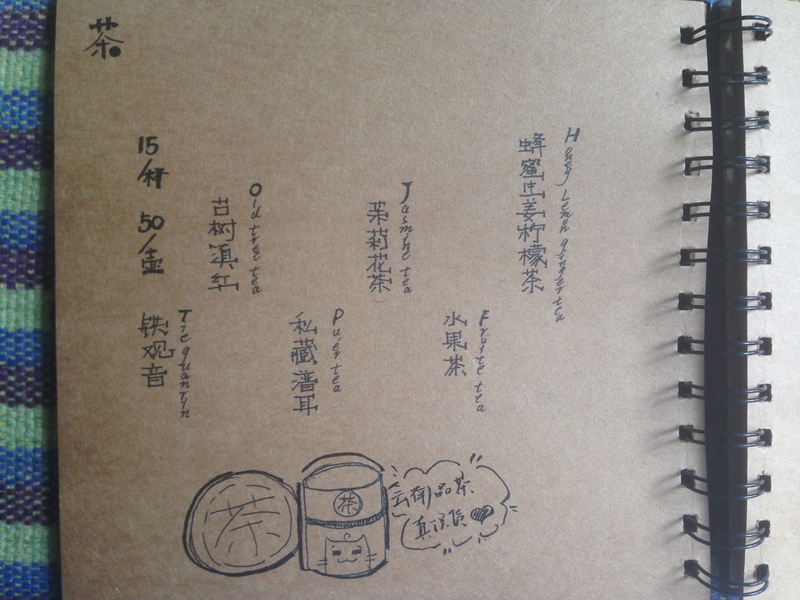 茶
15/杯 50/壶
古树滇红
Old tree tea
茉莉花茶
Jasmine tea
蜂蜜生姜柠檬茶
Honey Lemon ginger tea
铁观音
Tie guantin
私藏普耳
Pu'er tea
水果茶
Fruite tea
茶
茶
云南品茶
真